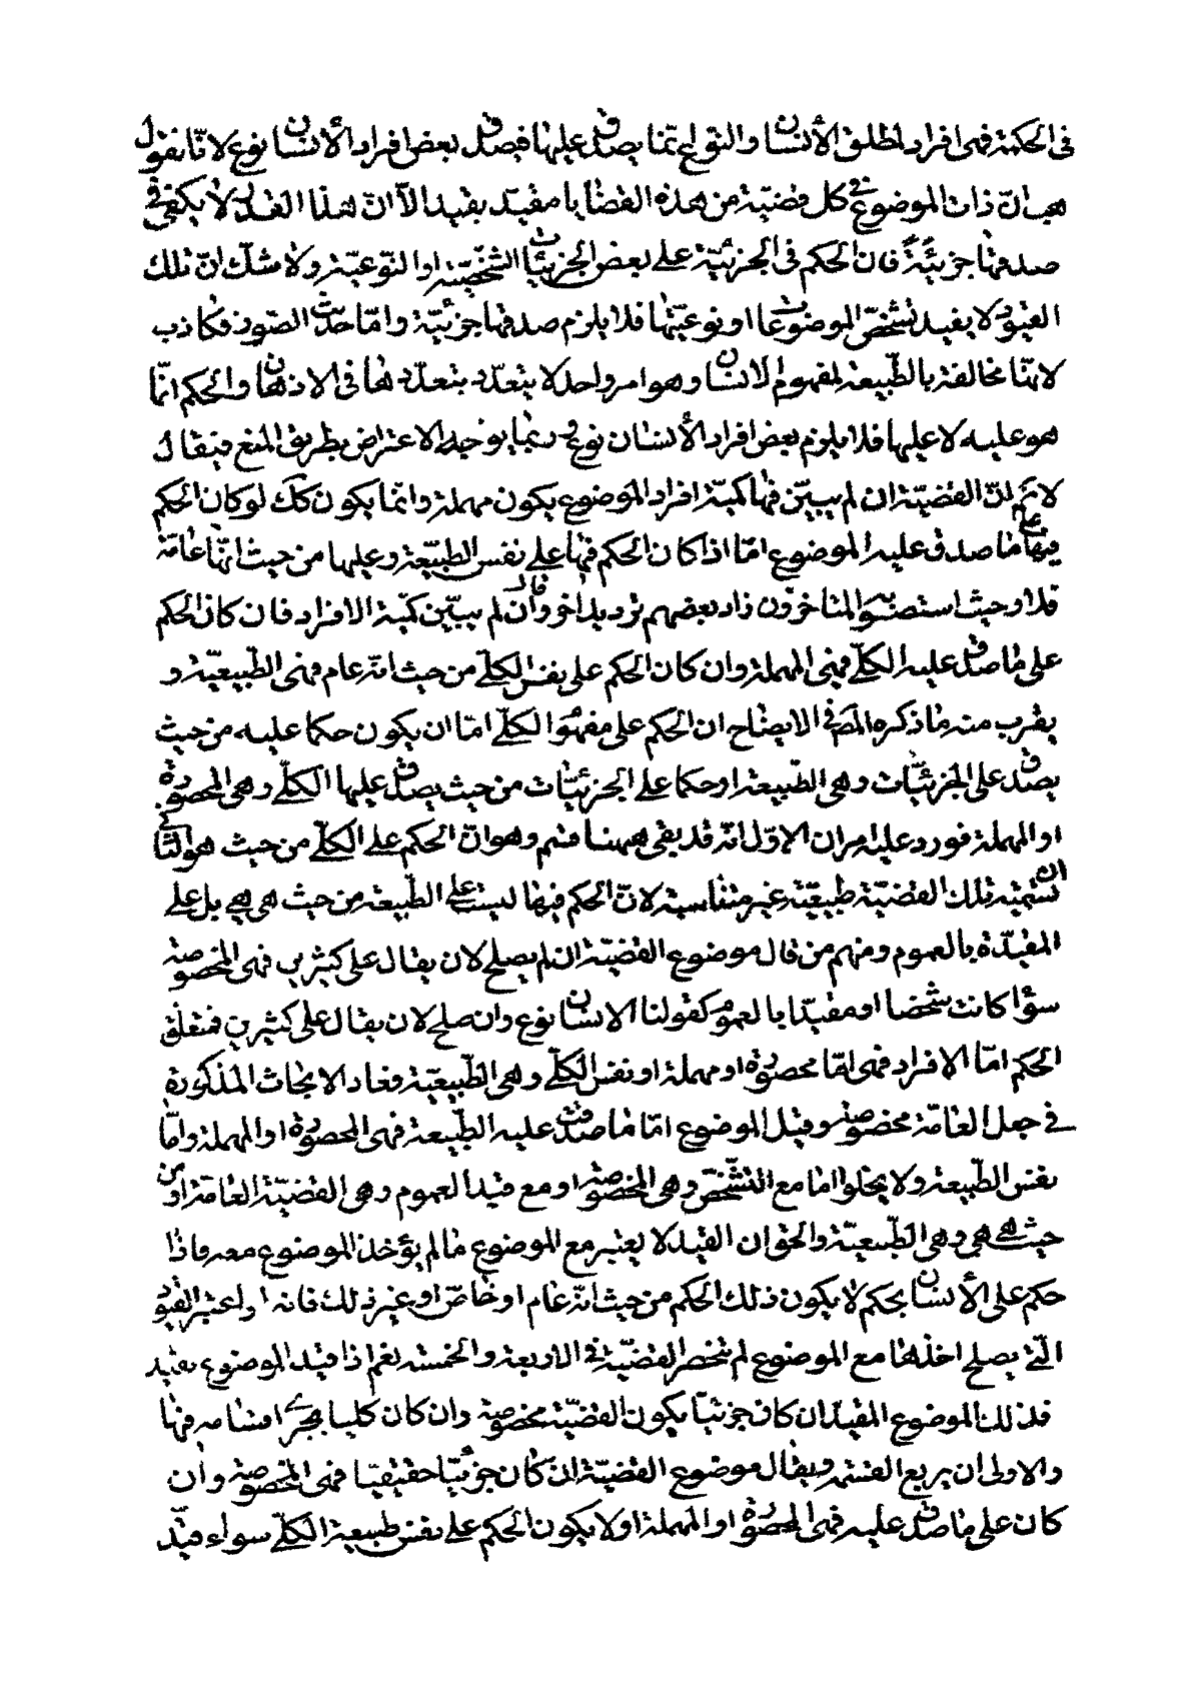 فى الحكمة فهى افراد لمطلق الأنسان والنوع انما يصدق عليها فيصدق بعض افراد الأنسان نوع لانا نقول
هب ان ذات الموضوع فى كل قضية من هذه القضايا مقيد بقيد الا ان هذا القدر لا يكفى فى
صدقها جزئية فان الحكم فى الجزئية على بعض الجزئيات الشخصية او النوعية ولا شك ان تلك
القيود لا يفيد تشخص الموضوعات او نوعيتها فلا يلزم صدقها جزئية واما حديث الصور فكاذب
لانها مخالفة بالطبيعة لمفهوم الانسان وهو امر واحد لا يتعدد بتعددها فى الاذهان والحكم انما
هو عليه لا عليها فلا يلزم بعض افراد الأنسان نوع وربما يوجه الاعتراض بطريق المنع فيقال
لانم ان القضية ان لم يبين فيها كمية افراد الموضوع يكون مهملة وانما يكون كك لو كان الحكم
فيها على ما صدق عليه الموضوع اما اذا كان الحكم فيها على نفس الطبيعة وعليها من حيث انها عامة
فلا وحيث استصعبه المتاخرون زاد بعضهم ترديدا اخر وقال وان لم يبين كمية الافراد فان كان الحكم
على ما صدق عليه الكلى فهى المهملة وان كان الحكم على نفس الكلى من حيث انه عام فهى الطبيعية و
يقرب منه ما ذكره المص فى الايضاح ان الحكم على مفهوم الكلى اما ان يكون حكما عليه من حيث
يصدق على الجزئيات وهى الطبيعة او حكما على الجزئيات من حيث يصدق عليها الكلى وهى المحصورة
او المهملة فورد عليه امران الاول انه قد بقى ههنا قسم وهو ان الحكم على الكلى من حيث هو الثانى
ان تسمية تلك القضية طبيعية غير مناسبة لان الحكم فيها ليست على الطبيعة من حيث هى هى بل على
المقيدة بالعموم ومنهم من قال موضوع القضية ان لم يصلح لان يقال على كثيرين فهى المخصوصة
سواء كانت شخصا او مقيدا بالعموم كقولنا الانسان نوع وان صلح لان يقال على كثيرين فمتعلق
الحكم اما الافراد فهى اما محصورة او مهملة او نفس الكلى وهى الطبيعية فعاد الابحاث المذكورة
فى جعل العامة مخصوصة وقيل الموضوع اما ما صدقت عليه الطبيعة فهى المحصورة او المهملة واما
نفس الطبيعة ولا يخلوا اما مع التشخص وهى المخصوصة او مع قيد العموم وهى القضية العامة او من
حيث هى هى وهى الطبيعية والحق ان القيد لا يعتبر مع الموضوع ما لم يؤخذ الموضوع معه فاذا
حكم على الأنسان بحكم لا يكون ذلك الحكم من حيث انه عام او خاص او غير ذلك فانه لو اعتبر القيود
التى يصلح اخذها مع الموضوع لم تنحصر القضية فى الاربعة والخمسة نعم اذا قيد الموضوع بقيد
فذلك الموضوع المقيد ان كان جزئيا يكون القضية مخصوصة وان كان كليا يجرى اقسامه فيها
والاولى ان يربع القسمة ويقال موضوع القضية ان كان جزئيا حقيقيا فهى المخصوصة وان
كان على ما صدق عليه فهى المحصورة او المهملة او لا يكون الحكم على نفس طبيعة الكلى سواء قيد